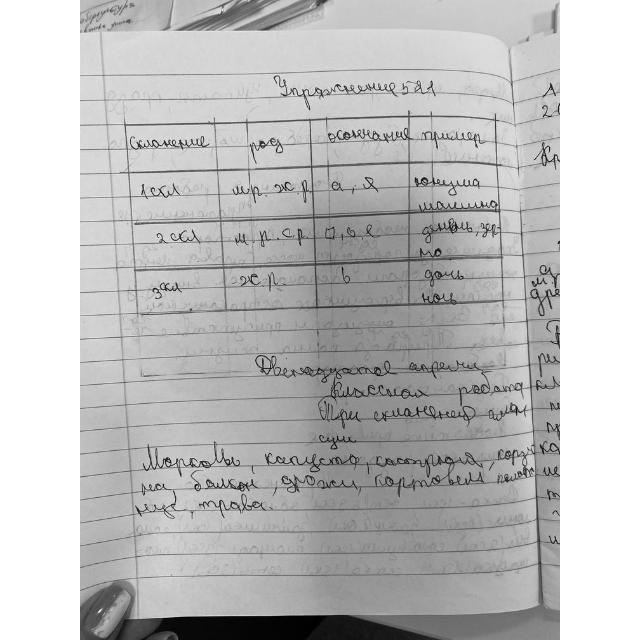 Упражнение 521
Склонение род окончание пример
1 скл м.р. ж.р а, я юнуша
машина
2 скл м.р. с.р. □, о, е день, зер-
но
3 скл ж.р. ь дочь
ночь
Двенадцатое апреля
Классная работа
Три склонения
Морковь, капуста, кастрюля, корзи
на, балкон, дрожи, картофель
трава.